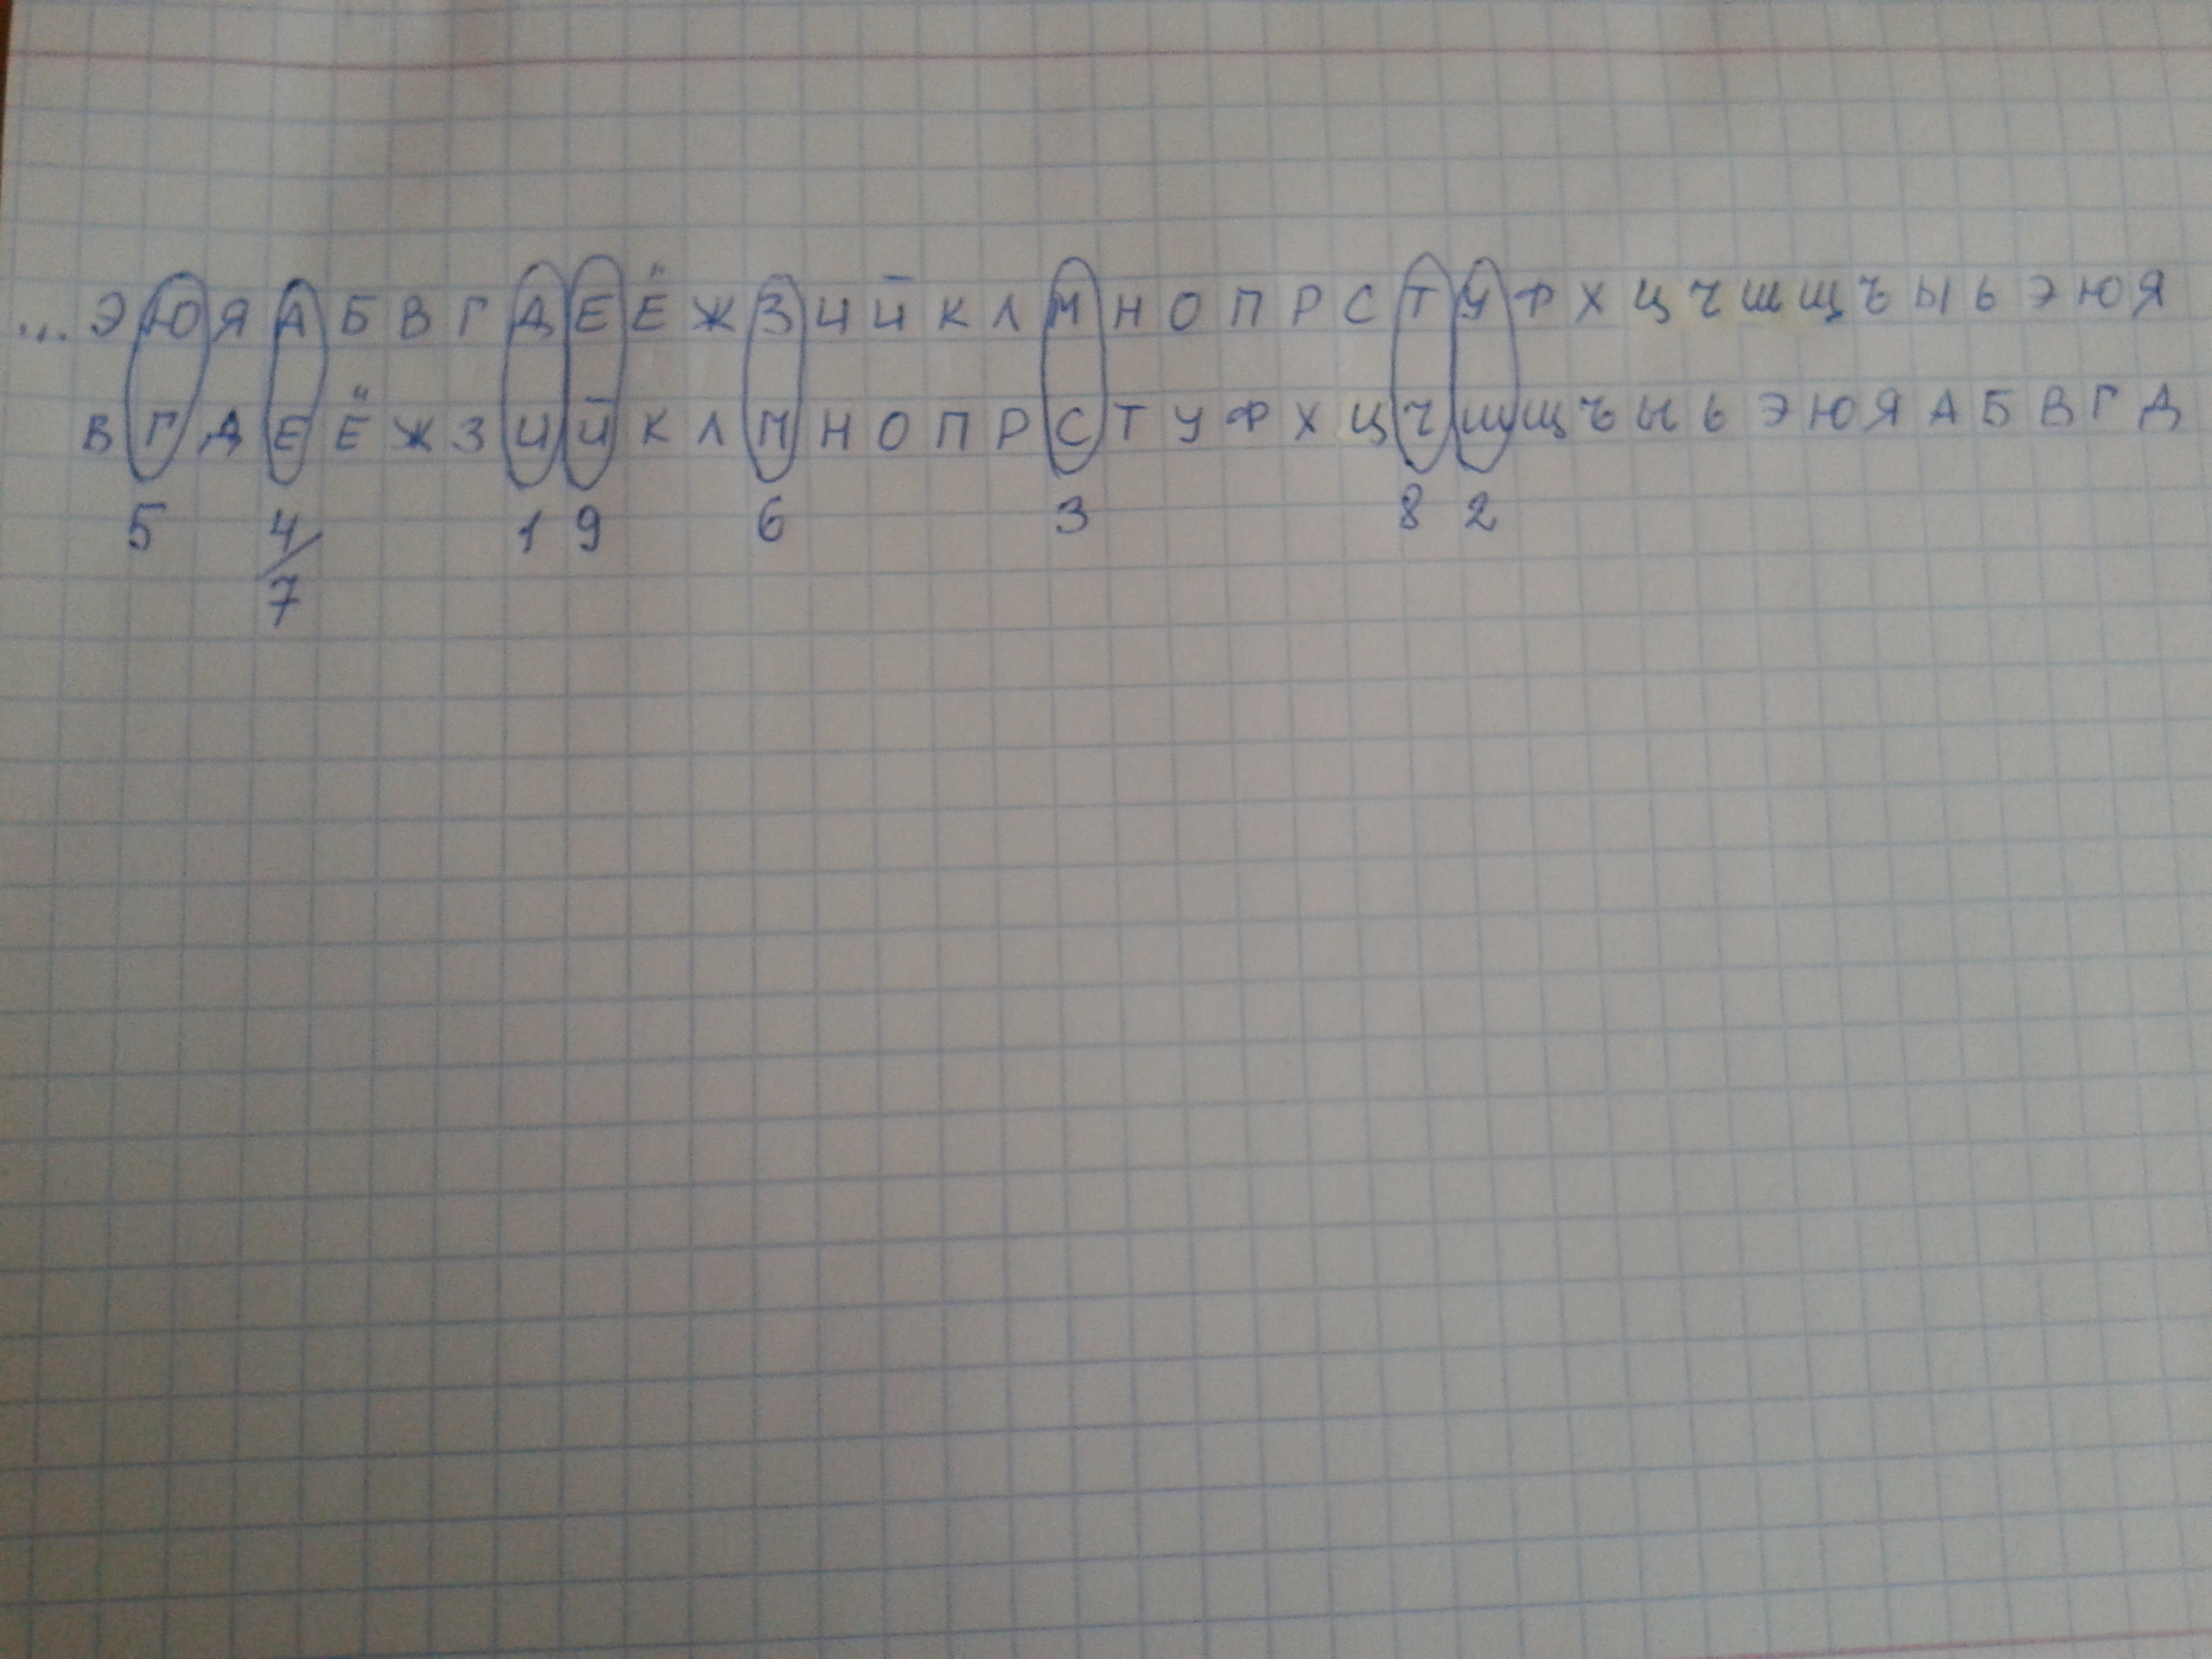 ... Э Ю Я А Б В Г Д Е Ё Ж З И Й К Л М Н О П Р С Т У Ф Х Ц Ч Ш Щ Ъ Ы Ь Э Ю Я
В Г Д Е Ё Ж З И Й К Л М Н О П Р С Т У Ф Х Ц Ч Ш Щ Ъ Ы Ь Э Ю Я А Б В Г Д
5 4/7 1 9 6 3 8 2